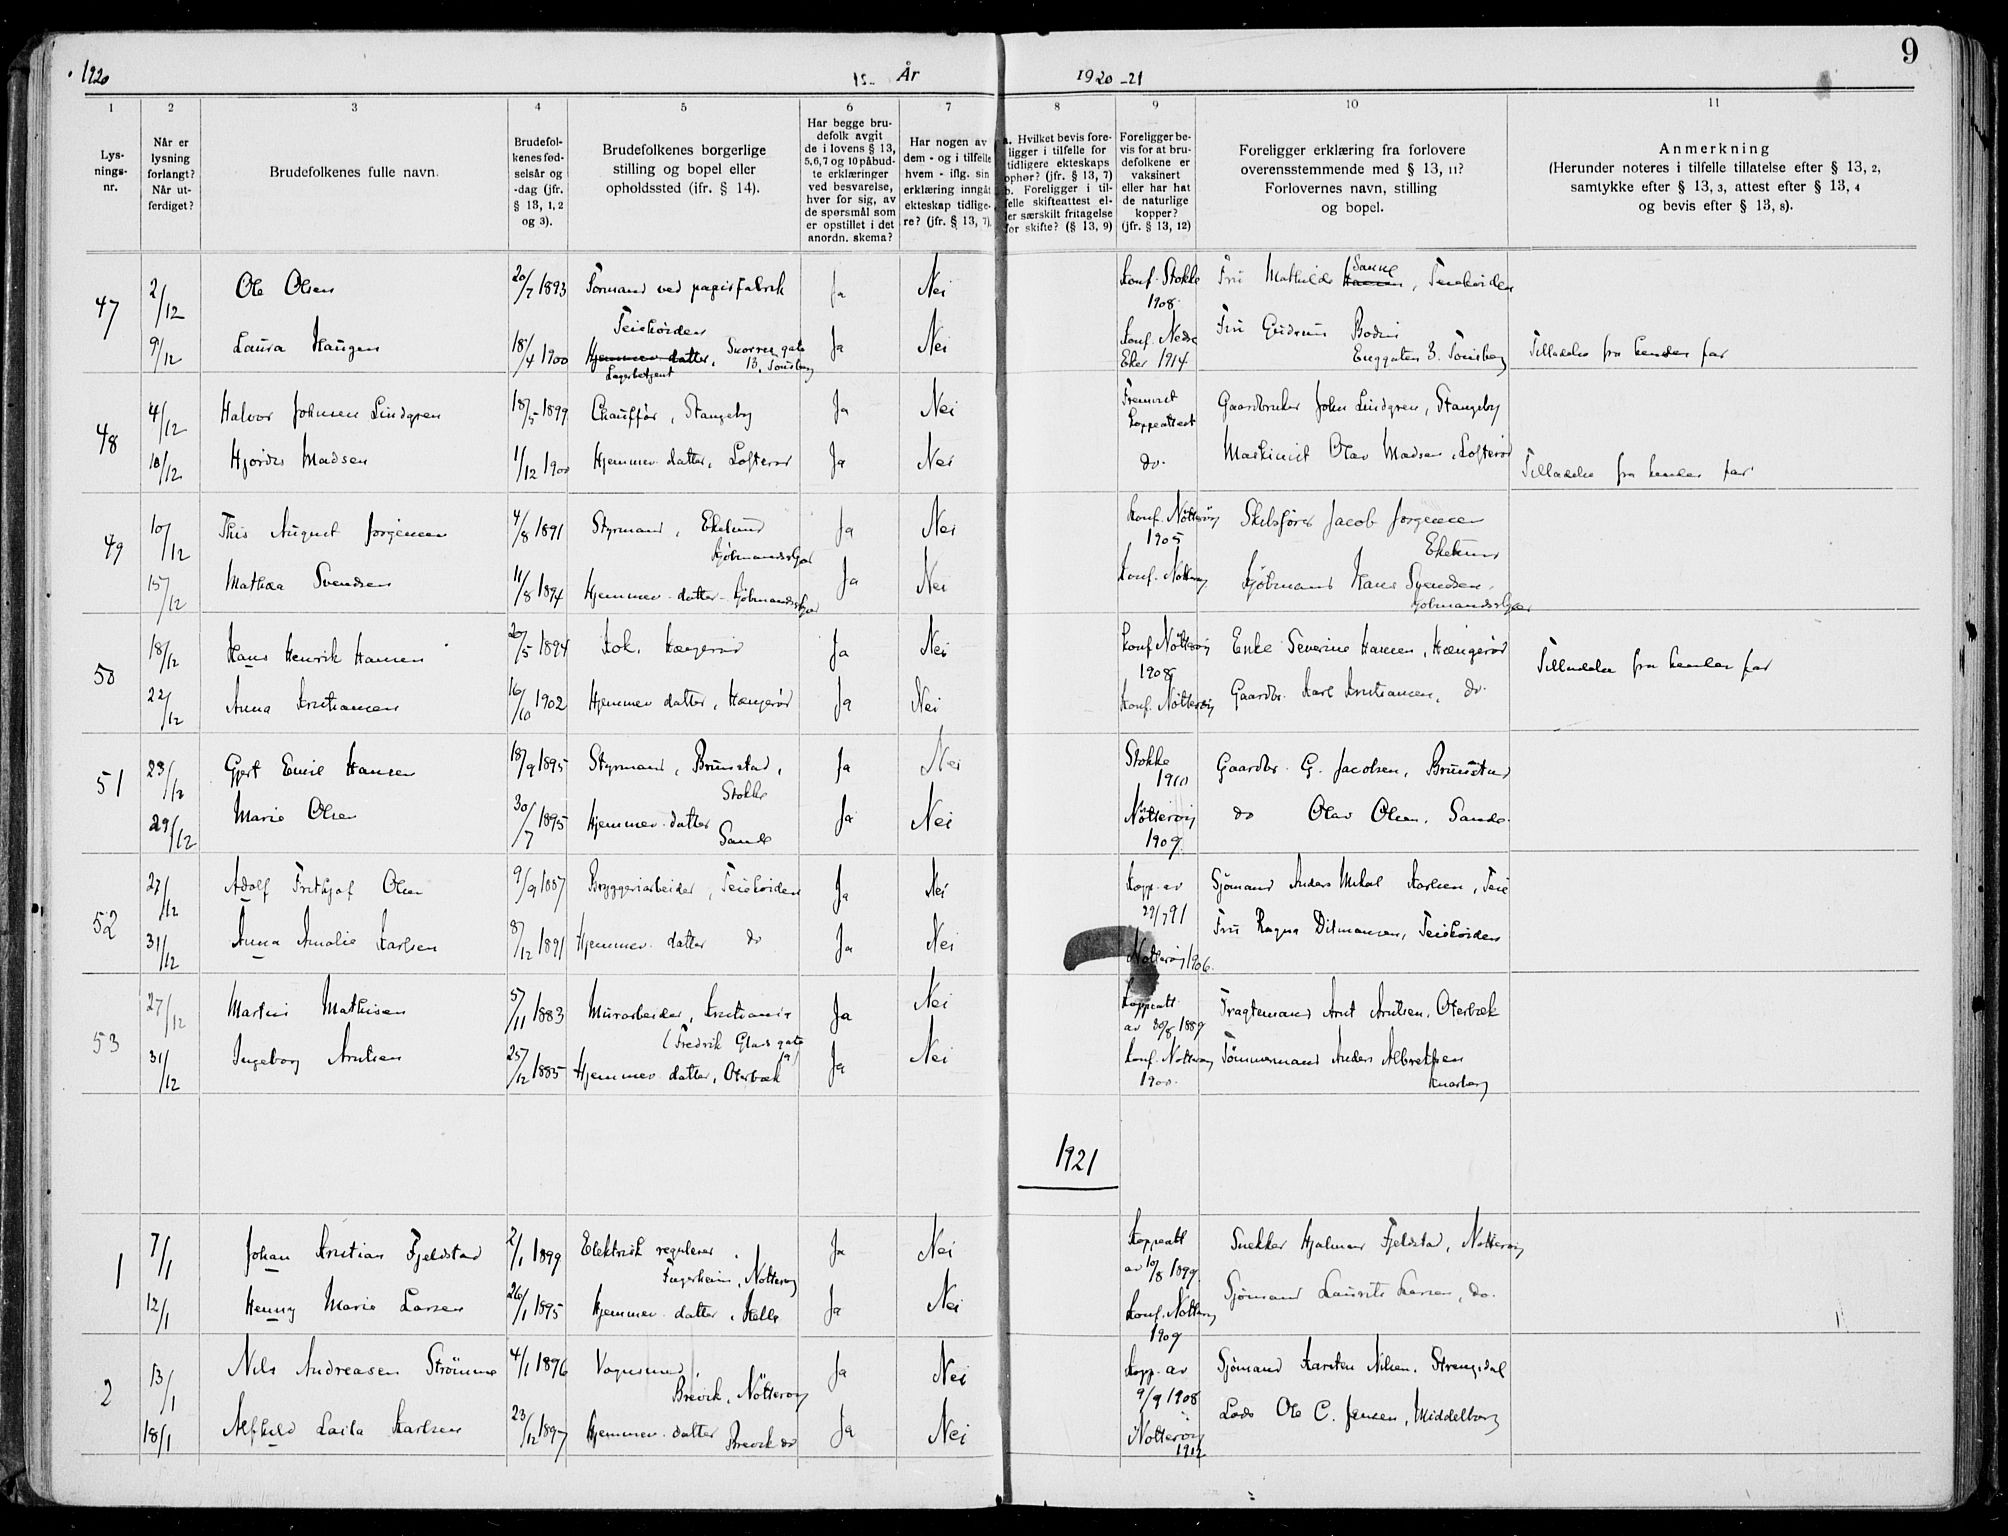 1920 År 1920-21 9
1 2 3 4 5 6 7 8 9 10 11
Lys-
nings-
nr.
Når er
lysning
forlangt?
Når ut-
ferdiget?
Brudefolkenes fulle navn.
Brudefol-
kenes fød-
selsår og
-dag (jfr.
§ 13, 1, 2
og 3).
Brudefolkenes borgerlige
stilling og bopel eller
opholdssted (jfr. § 14).
Har begge bru-
defolk avgit
de i lovens § 13,
5,6,7 og 10 påbud-
te erklæringer
ved besvarelse,
hver for sig, av
de spørsmål som
er opstillet i det
anordn. skema?
Har nogen av
dem - og i tilfelle
hvem - iflg. sin
erklæring inngåt
ekteskap tidlige-
re? (jfr. § 13, 7).
a. Hvilket bevis fore-
ligger i tilfelle for
tidligere ekteskaps
ophør? (jfr. § 13, 7)
b. Foreligger i til-
felle skifteattest el-
ler særskilt fritagelse
for skifte? (§ 13, 9)
Foreligger be-
vis for at bru-
defolkene er
vaksinert
eller har hat
de naturlige
kopper?
(jfr. § 13, 12)
Foreligger erklæring fra forlovere
overensstemmende med § 13, 11?
Forlovernes navn, stilling
og bopel.
Anmerkning
(Herunder noteres i tilfelle tillatelse efter § 13, 2,
samtykke efter § 13, 3, attest efter § 13, 4
og bevis efter § 13, 8).
47 2/12 Ole Olsen 20/7 1893 Formand ved papirfabrik Ja Nei Konf. Stokke 1908. Fru Mathilde Sanne, Teiehöiden
Teiehöiden
9/12 Laura Haugen 18/4 1900 Hjemmev. datter, Snorres gate 13, Tönsberg Ja Nei Konf. Nedre Eker 1914 Fru Gudrun Bodin Enggaten 3. Tönsberg Tilladelse fra hendes far
Lagerbetjent
48 4/12 Halvor Johnsen Lindgren 18/5 1899 Chauffør, Stangeby Ja Nei Fremvist koppeattest Gaardbruker John Lindgren, Stangeby
10/12 Hjördis Madsen 1/12 1900 Hjemmev. datter, Lofterød Ja Nei do. Maskinist Olav Madsen, Lofterød Tilladelse fra hendes far
49 10/12 This August Jørgensen 4/8 1891 Styrmand, Ekelund Kjøbmandsskjær Ja Nei Konf. Nøtterøy 1905 Skibsfører Jacob Jørgensen Ekelund
15/12 Mathea Svendsen 11/8 1894 Hjemmev. datter. Kjøbmandsskjær Ja Nei Konf. Nøtterøy Kjøbmand Hans Svendsen. Kjøbmandsskjær
50 18/12 Hans Henrik Hansen 26/5 1894 Kok, Hængerød Ja Nei Konf. Nøtterøy 1908 Enke Severine Hansen, Hængerød Tilladelse fra hendes far
22/12 Anna Kristiansen 16/10 1902 Hjemmev datter, Hængerød Ja Nei Konf. Nøtterøy Gaardbr. Karl Kristiansen, do.
51 23/12 Gjert Emil Hansen 18/9 1895 Styrmand, Brunstad, Stokke Ja Nei Stokke 1910 Gaardbr. G. Jacobsen, Brunstad
29/12 Marie Olsen 30/7 1895 Hjemmev. datter Sande Ja Nei Nøtterøy 1909 do Olav Olsen. Sande.
52 27/12 Adolf Frithjof Olsen 9/9 1887 Bryggeriarbeider, Teiehöiden Ja Nei Kopp. av 29/7 91 Sjømand Anders Mikal Karlsen, Teie
31/12 Anna Amalie Karlsen 8/12 1891 Hjemmev. datter do Ja Nei Nøtterøy 1906. Fru Ragna Ditmansen, Teiehöiden
53 27/12 Martin Mathisen 5/11 1883 Murarbeider, Kristiania (Fredrik Glads gate Ja Nei Koppeatt. av 30/8 1889 Fragtemand Arnt Arntsen, Oterbæk
31/12 Ingeborg Arntsen 25/12 1885 Hjemmev. datter, Oterbæk Ja Nei Konf. Nøtterøy 1900. Tømmermand Anders Albretsen Knarberg
1921
1 7/1 Johan Kristian Fjeldstad 2/1 1899 Elektrisk regulerer. Fagerheim, Nøtterøy Ja Nei Koppeatt av 10/8 1899 Snekker Hjalmar Fjeldstad, Nøtterøy
12/1 Henny Marie Larsen 26/1 1895 Hjemmev. datter, Hella Ja Nei Konf. Nøtterøy 1909 Sjømand Laurits Larsen, do.
2 13/1 Nils Andreasen Strömme 4/1 1896 Vognmand, Brevik, Nøtterøy Ja Nei Kopp. av 9/9 1908 Sjømand Karsten Nilsen. Strengsdal
18/1 Alfhild Laila Karlsen 23/12 1897 Hjemmev. datter Brevik do Ja Nei Nøtterøy 1912 Lods Ole C. Jensen, Middelborg